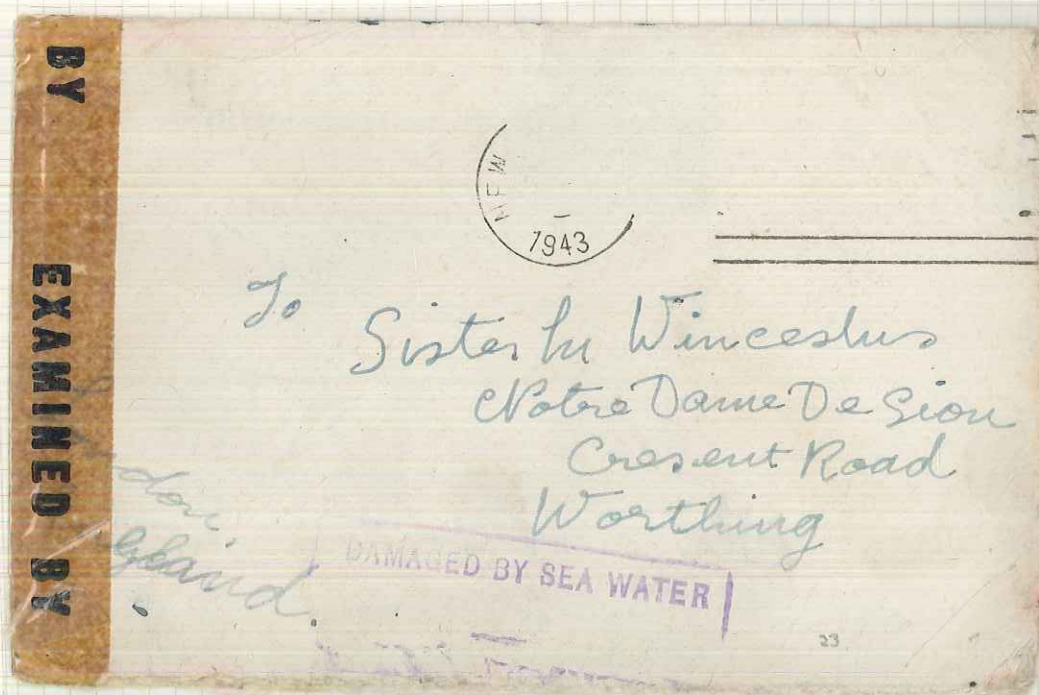 BY EXAMINED BY
NEW
1943
To
Sister M Winceslus
Notre Dame De Sion
Cresent Road
Worthing
DAMAGED BY SEA WATER
23